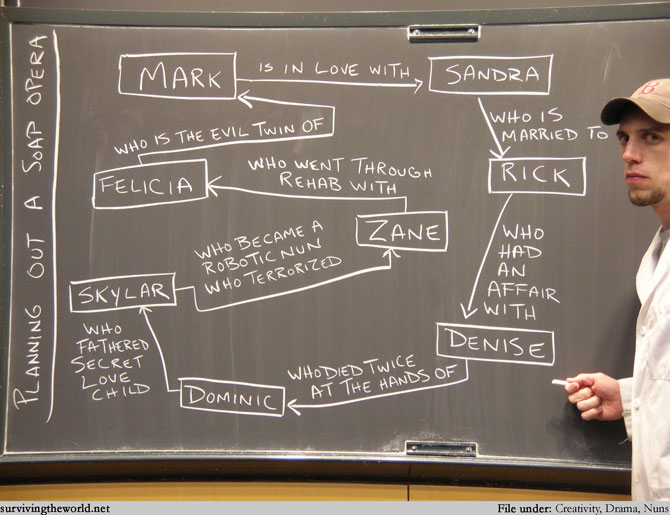 PLANNING OUT A SOAP OPERA
MARK
IS IN LOVE WITH
SANDRA
WHO IS
MARRIED TO
RICK
WHO
HAD
AN
AFFAIR
WITH
DENISE
WHO DIED TWICE
AT THE HANDS OF
DOMINIC
WHO
FATHERED
SECRET
LOVE
CHILD
SKYLAR
WHO BECAME A
ROBOTIC NUN
WHO TERRORIZED
ZANE
WHO WENT THROUGH
REHAB WITH
FELICIA
WHO IS THE EVIL TWIN OF
B
survivingtheworld.net
File under: Creativity, Drama, Nuns